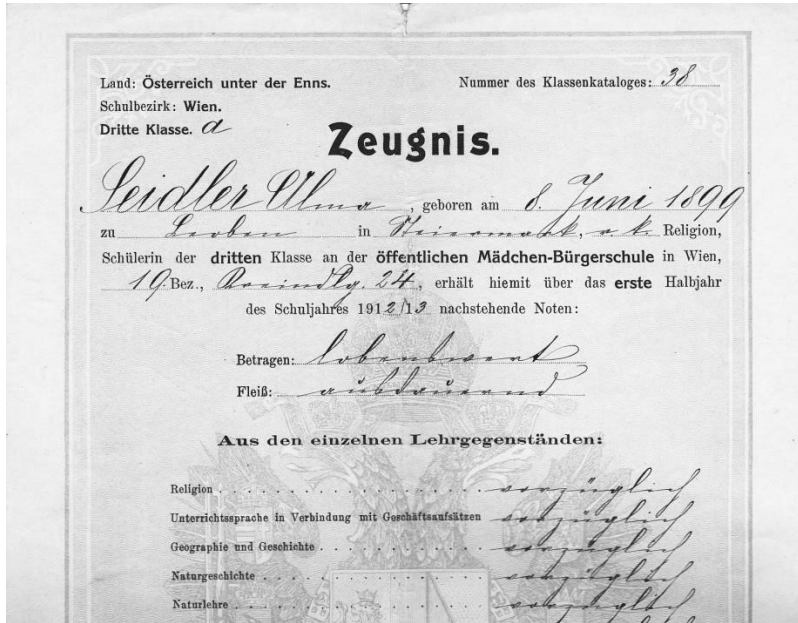 Land: Österreich unter der Enns. Nummer des Klassenkataloges: 38
Schulbezirk: Wien.
Dritte Klasse. a
Zeugnis.
Seidler Alma, geboren am 8. Juni 1899
zu Leoben in Steiermark, r. k. Religion,
Schülerin der dritten Klasse an der öffentlichen Mädchen-Bürgerschule in Wien,
19. Bez., Kreindlg. 24, erhält hiemit über das erste Halbjahr
des Schuljahres 1912/13 nachstehende Noten:
Betragen: lobenswert
Fleiß: ausdauernd
Aus den einzelnen Lehrgegenständen:
Religion vorzüglich
Unterrichtssprache in Verbindung mit Geschäftsaufsätzen vorzüglich
Geographie und Geschichte vorzüglich
Naturgeschichte vorzüglich
Naturlehre vorzüglich